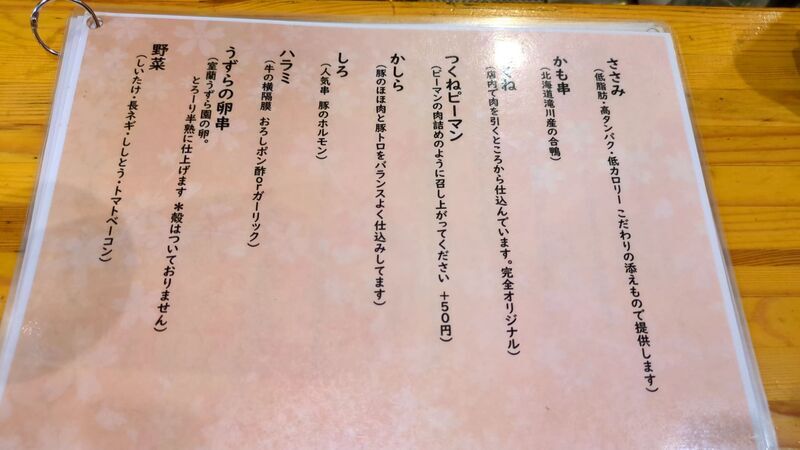 ささみ
(低脂肪・高タンパク・低カロリー こだわりの添えもので提供します)
かも串
(北海道滝川産の合鴨)
くね
(店内で肉を引くところから仕込んでいます。完全オリジナル)
つくねピーマン
(ピーマンの肉詰めのように召し上がってください +50円)
かしら
(豚のほほ肉と豚トロをバランスよく仕込みしてます)
しろ
(人気串 豚のホルモン)
ハラミ
(牛の横隔膜 おろしポン酢orガーリック)
うずらの卵串
(室蘭うずら園の卵。
とろーり半熟に仕上げます *殻はついておりません)
野菜
(しいたけ・長ネギ・ししとう・トマトベーコン)